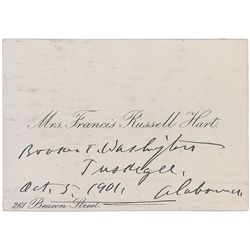 Mrs. Francis Russell Hart.
Booker T. Washington
Tuskegee,
Oct. 5. 1901. Alabama
261 Beacon Street.